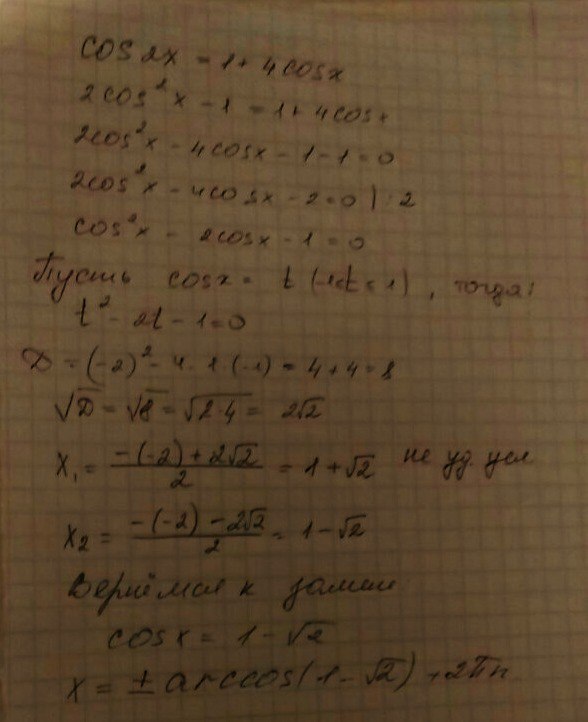 cos 2x = 1 + 4cosx
2cos²x - 1 = 1 + 4cosx
2cos²x - 4cosx - 1 - 1 = 0
2cos²x - 4cosx - 2 = 0 | : 2
cos²x - 2cosx - 1 = 0
Пусть cosx = t (-1≤t≤1), тогда:
t² - 2t - 1 = 0
D = (-2)² - 4·1·(-1) = 4 + 4 = 8
√D = √8 = √2·4 = 2√2
x₁ = (-(-2) + 2√2)/2 = 1 + √2 не уд. усл
x₂ = (-(-2) - 2√2)/2 = 1 - √2
Вернёмся к замене
cosx = 1 - √2
x = ± arccos(1 - √2) + 2πn